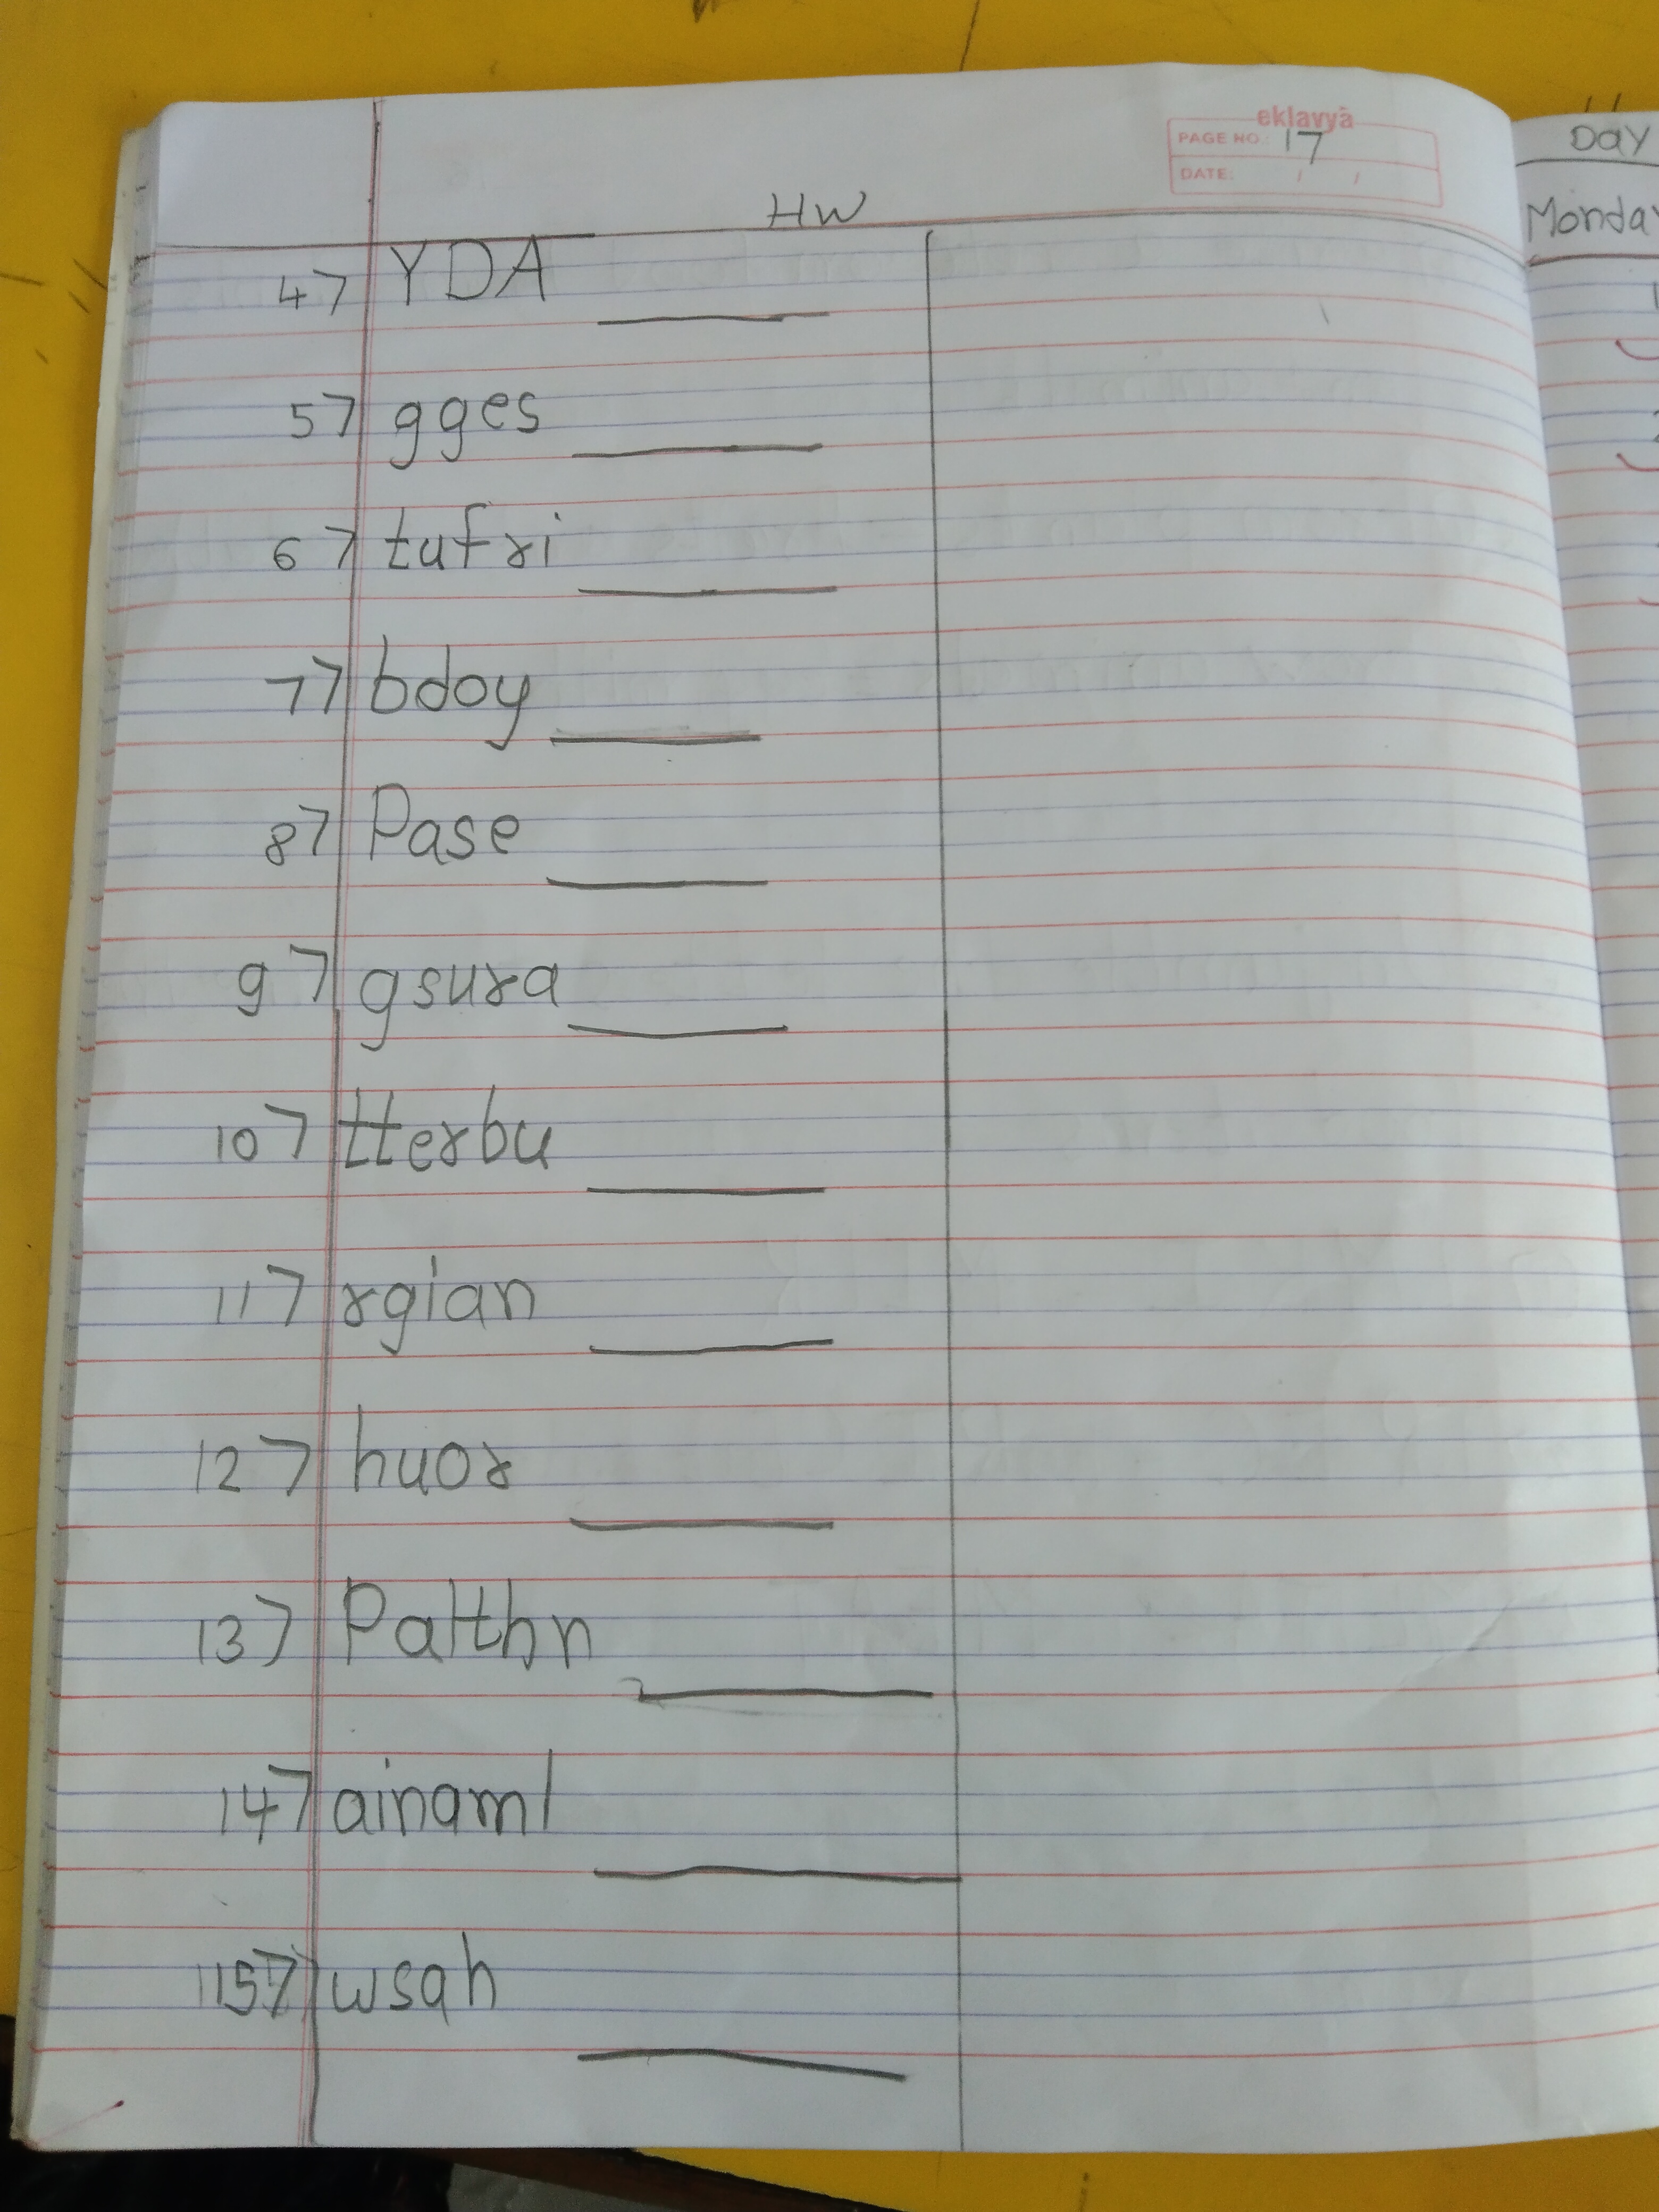 eklavya
PAGE NO.: 17
DATE: / /
HW
4> YDA
5> gges
6> tufri
7> bdoy
8> Pase
9> gsura
10> tterbu
11> rgian
12> huor
13> Palthn
14> ainaml
15> wsah
Day
Monday